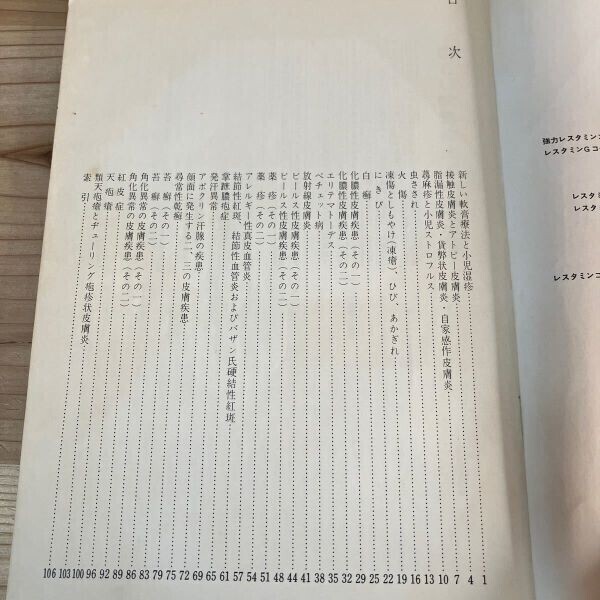 目次
新しい軟膏療法と小児湿疹 1
接触皮膚炎とアトピー皮膚炎 4
脂漏性皮膚炎・貨幣状皮膚炎・自家感作皮膚炎 7
蕁麻疹と小児ストロフルス 10
虫さされ 13
火傷 16
凍傷としもやけ(凍瘡)、ひび、あかぎれ 19
にきび 22
白癬 25
化膿性皮膚疾患(その一) 29
化膿性皮膚疾患(その二) 32
エリテマトーデス 35
ベチェット病 38
放射線皮膚炎 41
ビールス性皮膚疾患(その一) 44
ビールス性皮膚疾患(その二) 48
薬疹(その一) 51
薬疹(その二) 54
アレルギー性真皮血管炎 57
結節性紅斑、結節性血管炎およびバザン氏硬結性紅斑 61
掌蹠膿疱症 65
発汗異常 69
アポクリン汗腺の疾患 72
顔面に発生する二、三の皮膚疾患 75
尋常性乾癬 79
苔癬(その一) 83
苔癬(その二) 86
角化異常の皮膚疾患(その一) 89
角化異常の皮膚疾患(その二) 92
紅皮症 96
天疱瘡 100
類天疱瘡とデューリング疱疹状皮膚炎 103
索引 106
強力レスタミン
レスタミンGコー
レスタミ
レスタ
レスタミンコ